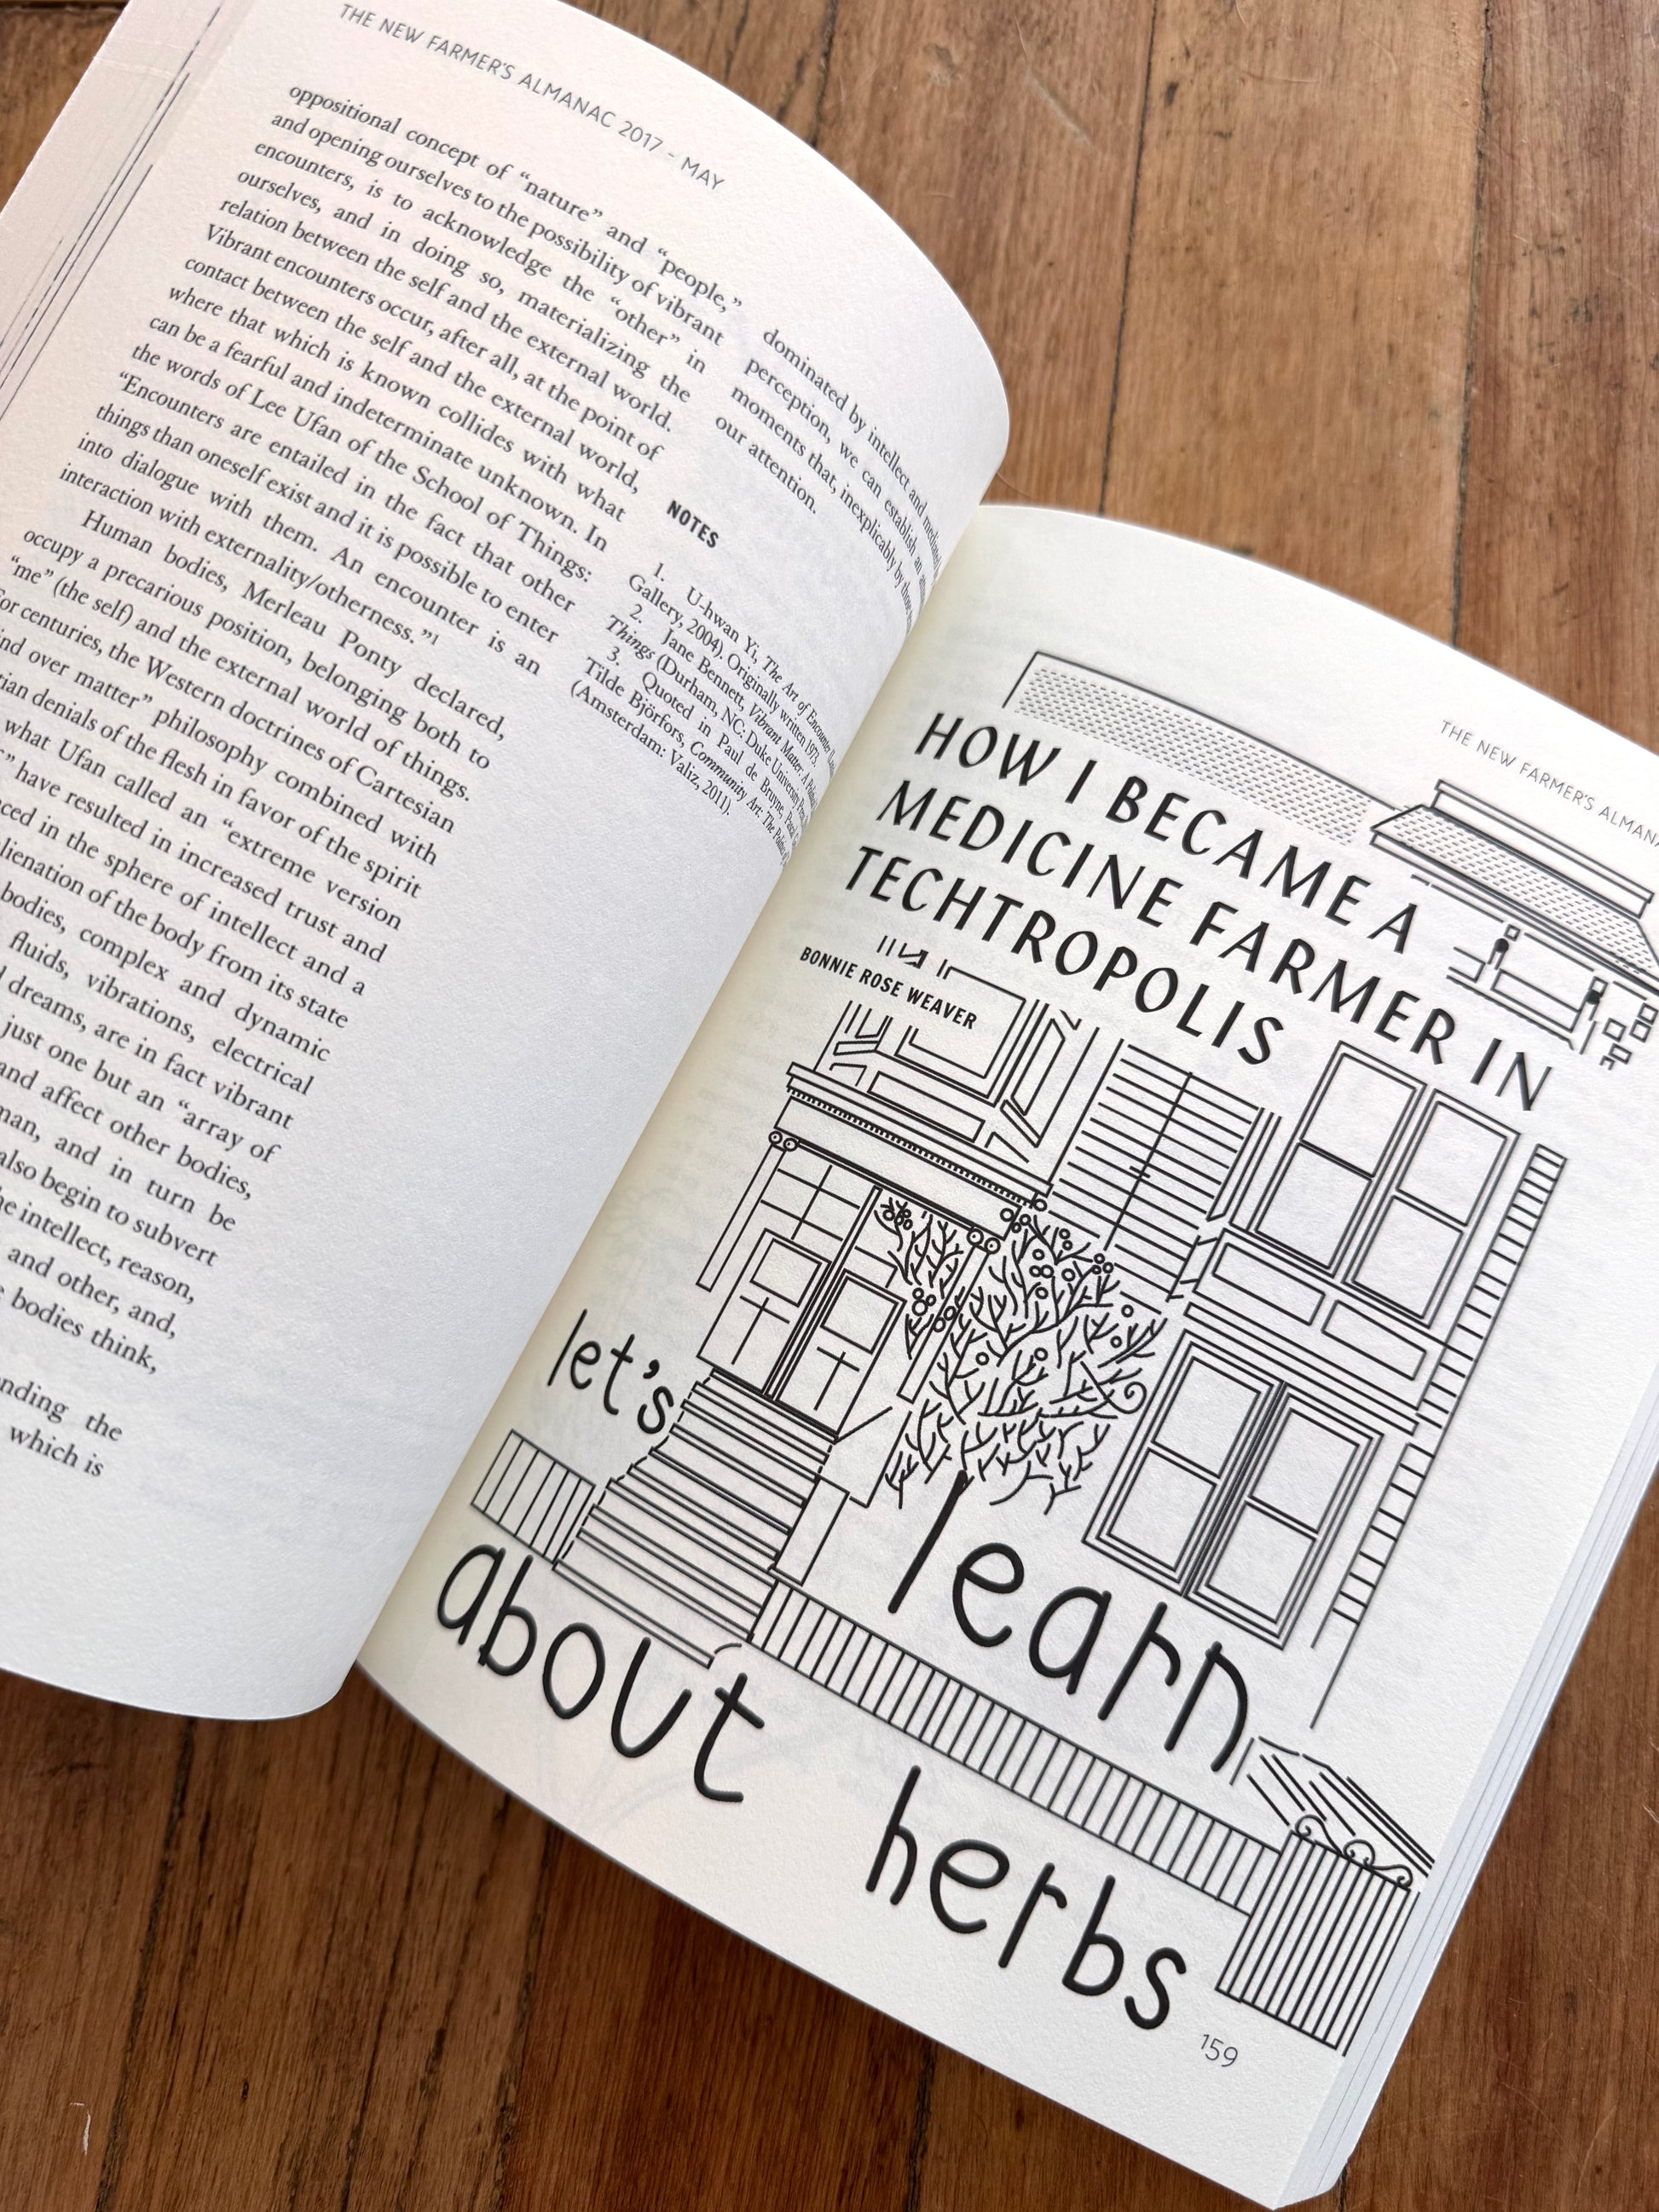 THE NEW FARMER'S ALMANAC 2017 - MAY
oppositional concept of “nature” and “people,”
and opening ourselves to the possibility of vibrant
encounters, is to acknowledge the “other” in
ourselves, and in doing so, materializing the
relation between the self and the external world.
Vibrant encounters occur, after all, at the point of
contact between the self and the external world,
where that which is known collides with what
can be a fearful and indeterminate unknown. In
the words of Lee Ufan of the School of Things:
“Encounters are entailed in the fact that other
things than oneself exist and it is possible to enter
into dialogue with them. An encounter is an
interaction with externality/otherness.”1
Human bodies, Merleau Ponty declared,
occupy a precarious position, belonging both to
“me” (the self) and the external world of things.
for centuries, the Western doctrines of Cartesian
over matter” philosophy combined with
denials of the flesh in favor of the spirit
what Ufan called an “extreme version
have resulted in increased trust and
in the sphere of intellect and a
alienation of the body from its state
bodies, complex and dynamic
fluids, vibrations, electrical
dreams, are in fact vibrant
just one but an “array of
and affect other bodies,
and in turn be
also begin to subvert
intellect, reason,
and other, and,
bodies think,
the
which is
dominated by intellect and
perception, we can establish an
moments that, inexplicably by
our attention.
NOTES
1. U-hwan Yi, The Art of Encounter
Gallery, 2004). Originally written 1973.
2. Jane Bennett, Vibrant Matter:
Things (Durham, NC: Duke University
3. Quoted in Paul de Bruyne,
Tilde Björfors, Community Art: The
(Amsterdam: Valiz, 2011).
THE NEW FARMER'S
HOW I BECAME A
MEDICINE FARMER IN
TECHTROPOLIS
BONNIE ROSE WEAVER
let's
learn
about
herbs
159